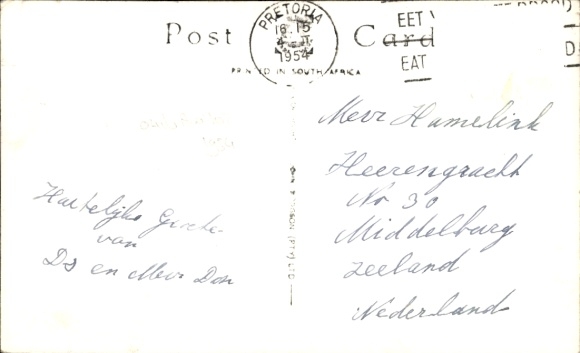 PRETORIA
16.15
1954
EET
EAT
Post Card
PRINTED IN SOUTH AFRICA
Hartelijke Groete
van
Ds en Mevr Don
(PTY) LTD
Mevr Hamelink
Heerengracht
No 30
Middelburg
Zeeland
Nederland